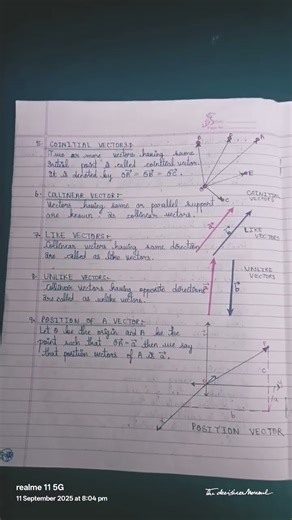 5. COINITIAL VECTORS:-
Two or more vectors having same
initial point is called coinitial vector
It is denoted by OA = OB = OC.
COINITIAL
VECTORS
6. COLINEAR VECTOR:-
Vectors having same or parallel support
are known as colinear vectors.
7. LIKE VECTORS:-
Colinear vectors having same direction
are called as like vectors.
LIKE
VECTORS
8. UNLIKE VECTORS:-
Colinear vectors having opposite directions
are called as unlike vectors.
UNLIKE
VECTORS
9. POSITION OF A VECTOR:-
Let O be the origin and A be the
point such that OA = a then we say
that position vectors of A is a.
POSITION VECTOR
realme 11 5G
11 September 2025 at 8:04 pm